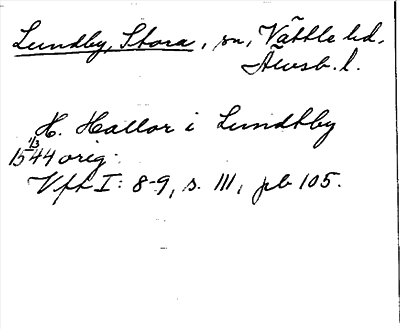 Lundby, Stora, sn, Vättle hd.
Älvsb. l.
H. Hallor i Lundtby
1/3
1544 orig.
Vft I: 8-9, s. 111, pb 105.